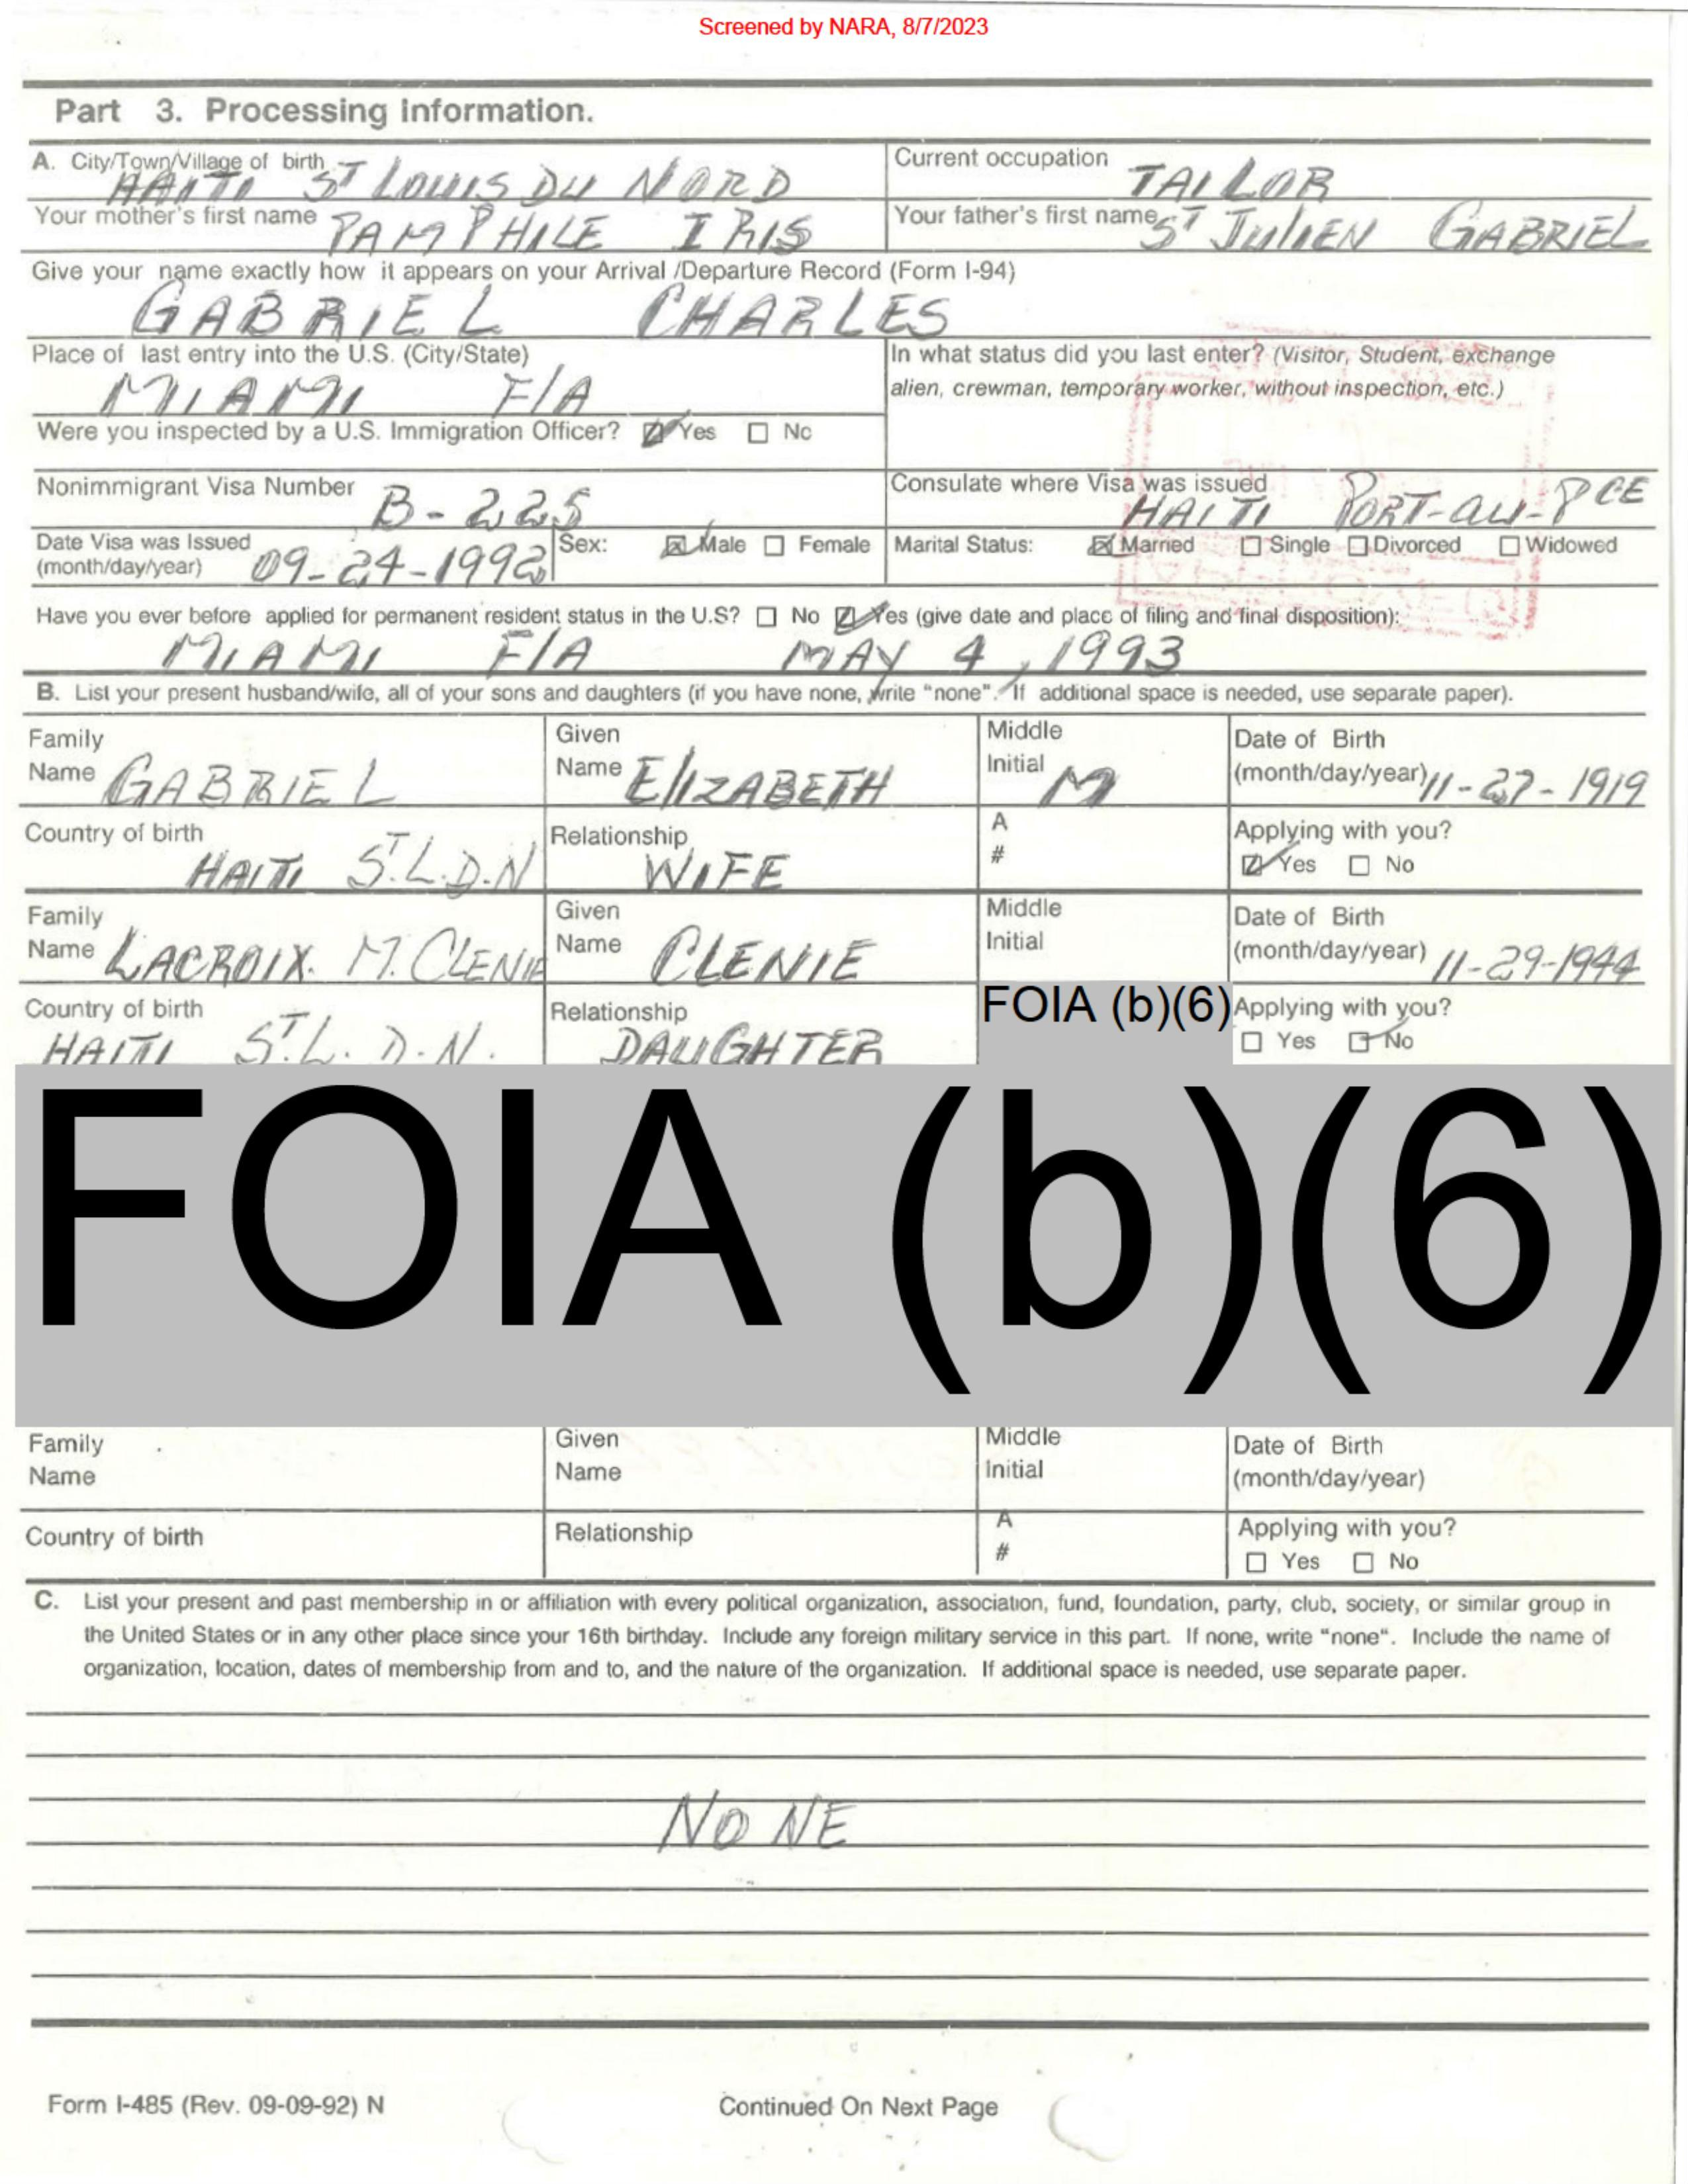 Screened by NARA, 8/7/2023
Part 3. Processing Information.
A. City/Town/Village of birth HAITI ST LOUIS DU NORD Current occupation TAILOR
Your mother's first name PAMPHILE IRIS Your father's first name ST JULIEN GABRIEL
Give your name exactly how it appears on your Arrival /Departure Record (Form I-94)
GABRIEL CHARLES
Place of last entry into the U.S. (City/State) In what status did you last enter? (Visitor, Student, exchange
MIAMI F/A alien, crewman, temporary worker, without inspection, etc.)
Were you inspected by a U.S. Immigration Officer? ☑ Yes ☐ No
Nonimmigrant Visa Number B-225 Consulate where Visa was issued HAITI PORT-au-PCE
Date Visa was Issued (month/day/year) 09-24-1992 Sex: ☒ Male ☐ Female Marital Status: ☒ Married ☐ Single ☐ Divorced ☐ Widowed
Have you ever before applied for permanent resident status in the U.S? ☐ No ☑ Yes (give date and place of filing and final disposition):
MIAMI F/A MAY 4, 1993
B. List your present husband/wife, all of your sons and daughters (if you have none, write "none". If additional space is needed, use separate paper).
Family Name GABRIEL Given Name ElIZABETH Middle Initial M Date of Birth (month/day/year) 11-27-1919
Country of birth HAITI ST.L.D.N Relationship WIFE A # Applying with you? ☑ Yes ☐ No
Family Name LACROIX. M. CLENIE Given Name CLENIE Middle Initial Date of Birth (month/day/year) 11-29-1944
Country of birth HAITI ST.L.D.N. Relationship DAUGHTER FOIA (b)(6) Applying with you? ☐ Yes ☑ No
FOIA (b)(6)
Family Name Given Name Middle Initial Date of Birth (month/day/year)
Country of birth Relationship A # Applying with you? ☐ Yes ☐ No
C. List your present and past membership in or affiliation with every political organization, association, fund, foundation, party, club, society, or similar group in
the United States or in any other place since your 16th birthday. Include any foreign military service in this part. If none, write "none". Include the name of
organization, location, dates of membership from and to, and the nature of the organization. If additional space is needed, use separate paper.
NONE
Form I-485 (Rev. 09-09-92) N Continued On Next Page